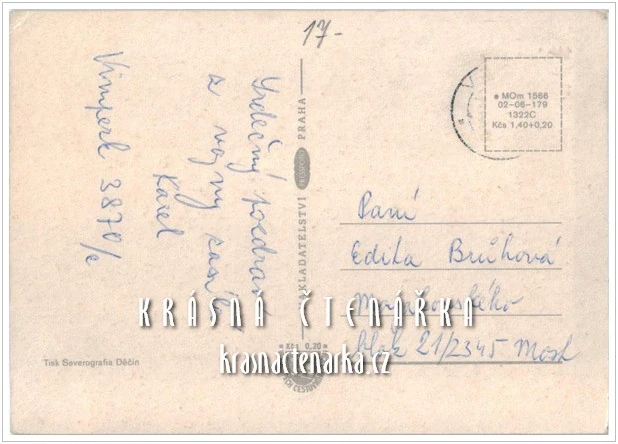 17-
Srdečný pozdrav
z vojny zasílá
Karel
Vimperk 3870/c
NAKLADATELSTVÍ PRAHA
MOm 1566
02-06-179
1322C
Kčs 1,40+0,20
Paní
Edita Brůhová
blok 21/2345 Most
KRÁSNÁ ČTENÁŘKA
krasnactenarka.cz
Kčs 0,20
Tisk Severografia Děčín